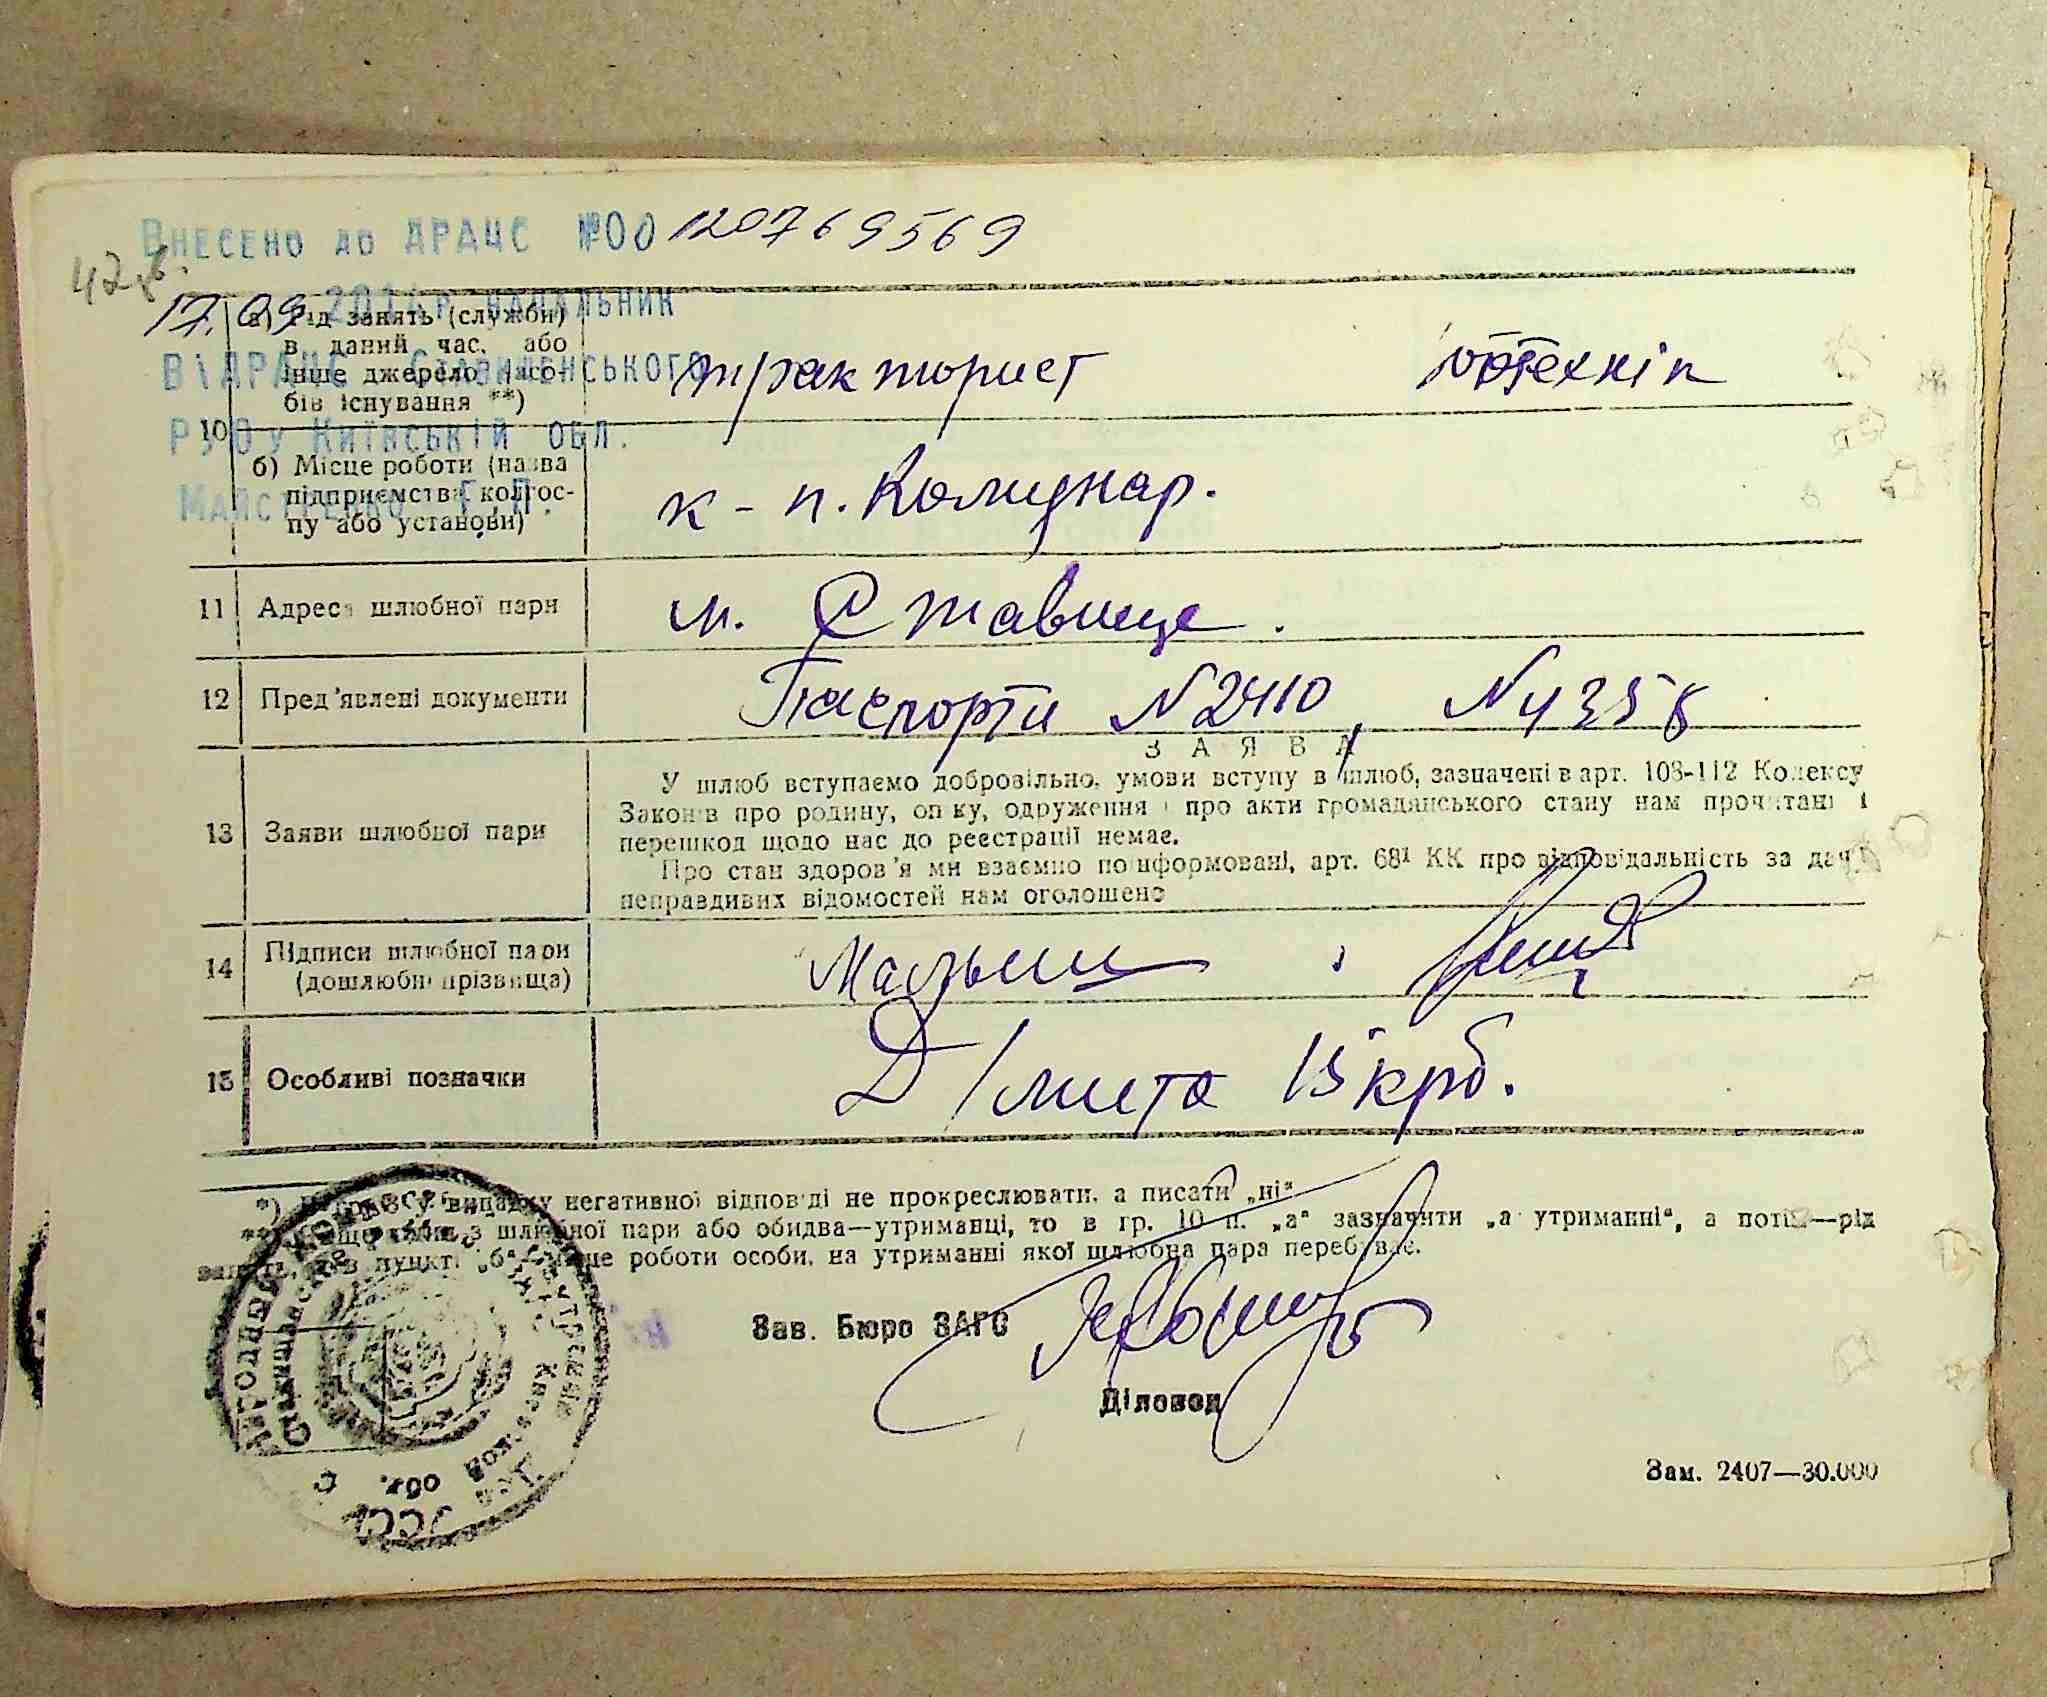 Внесено до ДРАЦС №00120769569
42 зв.
17.09 2014р начальник
ВіДРАЦС Ставищенського
РУЮ у Київській обл.
Майстренко Г.П.
10
а) Рід занять (служби)
в даний час, або
інше джерело засо-
бів існування **)
тракторист
б) Місце роботи (назва
підприємства, колгос-
пу або установи)
к-п. Комунар.
11 Адреса шлюбної пари м. Ставище.
12 Пред'явлені документи Паспорти N 2410, N 4356
13 Заяви шлюбної пари
ЗАЯВА
У шлюб вступаємо добровільно, умови вступу в шлюб, зазначені в арт. 108-112 Кодексу
Законів про родину, опіку, одруження і про акти громадянського стану нам прочитані і
перешкод щодо нас до реєстрації немає.
Про стан здоров'я ми взаємно поінформовані, арт. 68¹ КК про відповідальність за дачу
неправдивих відомостей нам оголошено
14 Підписи шлюбної пари
(дошлюбні прізвища)
Малыш
15 Особливі позначки Д/мита 15 крб.
*) В графі у випадку негативної відповіді не прокреслювати, а писати „ні“
**) Якщо один з шлюбної пари або обидва—утриманці, то в гр. 10 п. „а“ зазначити „а утриманні“, а потім—рід
занять, а в пункті „б“ місце роботи особи, на утриманні якої шлюбна пара перебуває.
Зав. Бюро ЗАГС
Діловод
Зам. 2407—30.000